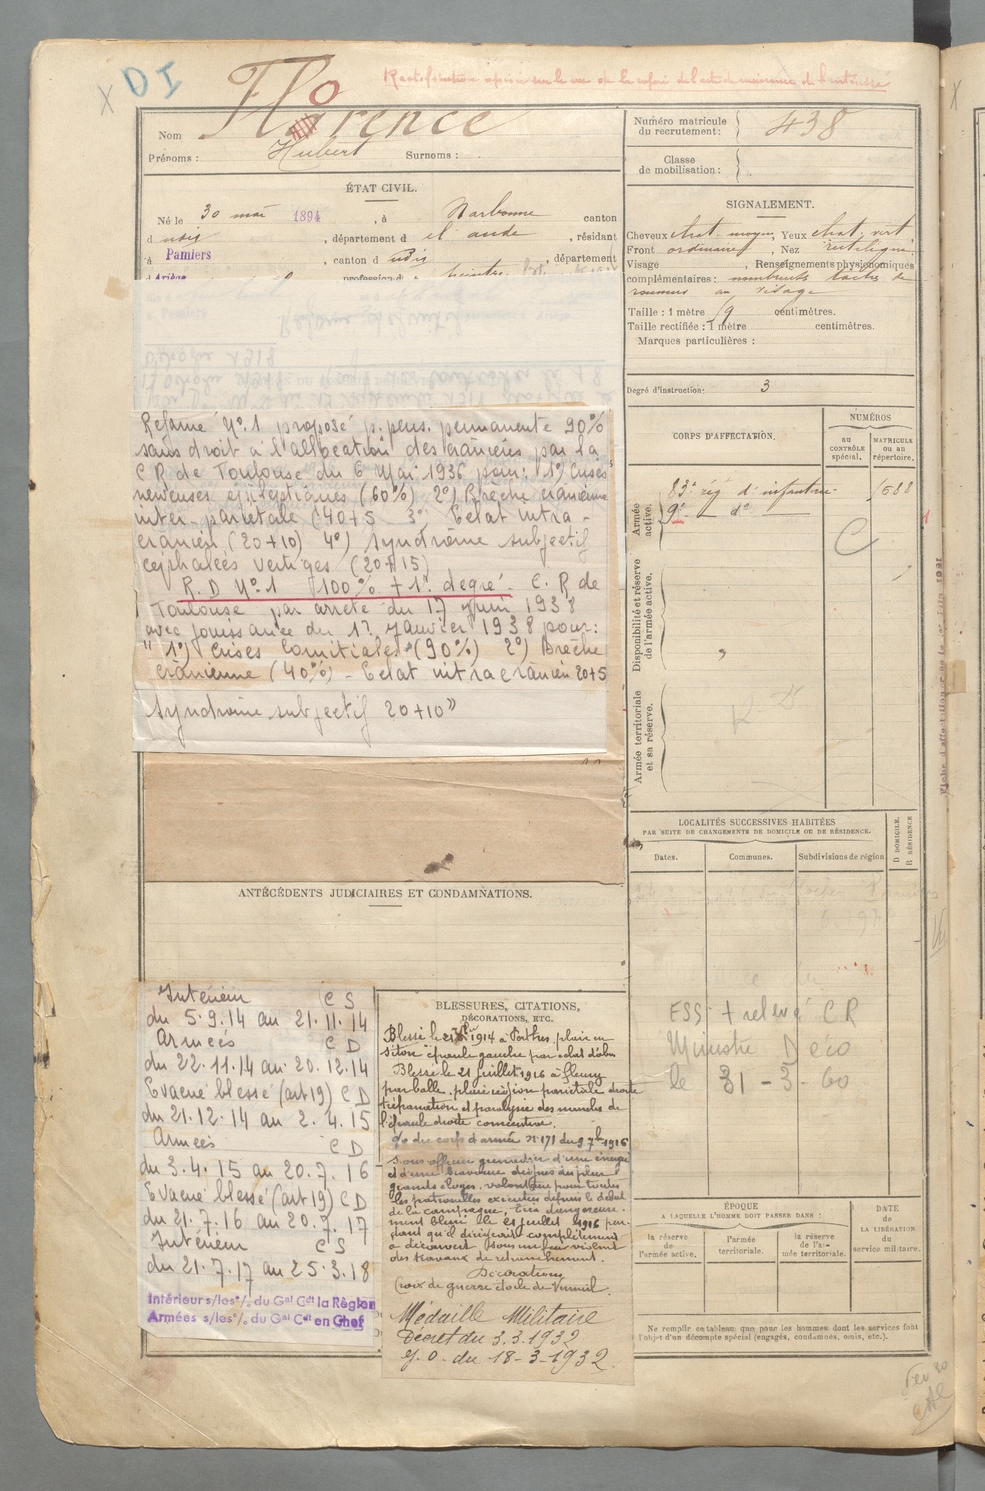 DI
Rectification opérée sur le vu de la copie de l'acte de naissance de l'intéressé
Nom Florence
Prénoms : Hubert Surnoms :
Numéro matricule du recrutement : 438
Classe de mobilisation :
ÉTAT CIVIL.
Né le 30 mai 1894, à Narbonne canton
d udis, département d el aude, résidant
à Pamiers, canton d udis, département
d Ariège profession d peintre
SIGNALEMENT.
Cheveux chat. moyen, Yeux chat. vert
Front ordinaire, Nez rectiligne
Visage , Renseignements physionomiques
complémentaires : nombreuses taches de
rousseur au visage
Taille : 1 mètre 59 centimètres.
Taille rectifiée : 1 mètre centimètres.
Marques particulières :
Degré d'instruction : 3
Réformé N° 1 proposé p. pens. permanente 90%
sans droit à l'allocation des crâniens par la
C R de Toulouse du 6 Mai 1936 pour : 1°) Crises
nerveuses épileptiques (60%) 2°) Brèche crânienne
inter-pariétale (40+5 3°) Eclat intra-
crânien (20+10) 4°) Syndrôme subjectif
céphalées vertiges (20+15)
R.D N° 1 100% + 1° degré - C. R de
Toulouse par arrêté du 17 Juin 1938
avec jouissance du 12 Janvier 1938 pour :
" 1°) Crises Comitiales (90%) 2°) Brèche
crânienne (40%) - Eclat intra crânien 20+5
Syndrôme subjectif 20+10"
CORPS D'AFFECTATION.
NUMÉROS
AU CONTRÔLE spécial.
MATRICULE ou au répertoire.
Armée active.
83e rég d'infanterie 1588
9e — d° —
C
Disponibilité et réserve de l'armée active.
Armée territoriale et sa réserve.
LOCALITÉS SUCCESSIVES HABITÉES
PAR SUITE DE CHANGEMENTS DE DOMICILE OU DE RÉSIDENCE.
Dates. Communes. Subdivisions de région.
D DOMICILE.
R RÉSIDENCE
ESS + relevé CR
Ministre Déco
le 31 - 3 - 60
ANTÉCÉDENTS JUDICIAIRES ET CONDAMNATIONS.
Intérieur C S
du 5.9.14 au 21.11.14
Armées C D
du 22.11.14 au 20.12.14
Evacué blessé (art 19) C D
du 21.12.14 au 2.4.15
Armées C D
du 3.4.15 au 20.7.16
Evacué blessé (art 19) C D
du 21.7.16 au 20.7.17
Intérieur C S
du 21.7.17 au 25.3.18
Intérieur s/les°/. du Gal Cdt la Région
Armées s/les°/. du Gal Cdt en Chef
BLESSURES, CITATIONS,
DÉCORATIONS, ETC.
Blessé le 1914 à Perthes, plaie en
séton épaule gauche par éclat d'obus
Blessé le 21 juillet 1916 à Fleury
par balle, plaie région pariétale droite
trépanation et paralysie des muscles de
l'épaule droite consécutive.
O/ du corps d'armée N° 171 du 9 7bre 1916
Sous officier grenadier d'une énergie
et d'une bravoure dignes des plus
grands éloges, volontaire pour toutes
les patrouilles exécutées depuis le début
de la campagne, très dangereuse-
ment blessé le 21 juillet 1916 pen-
dant qu'il dirigeait complètement
à découvert sous un feu violent
des travaux de retranchement.
Décoration
Croix de guerre étoile de Vermeil.
Médaille Militaire
Décret du 3.3.1932
J.O. du 18-3-1932
ÉPOQUE
A LAQUELLE L'HOMME DOIT PASSER DANS :
la réserve de l'armée active.
l'armée territoriale.
la réserve de l'armée territoriale.
DATE de la LIBÉRATION du service militaire.
Ne remplir ce tableau que pour les hommes dont les services font
l'objet d'un décompte spécial (engagés, condamnés, omis, etc.).